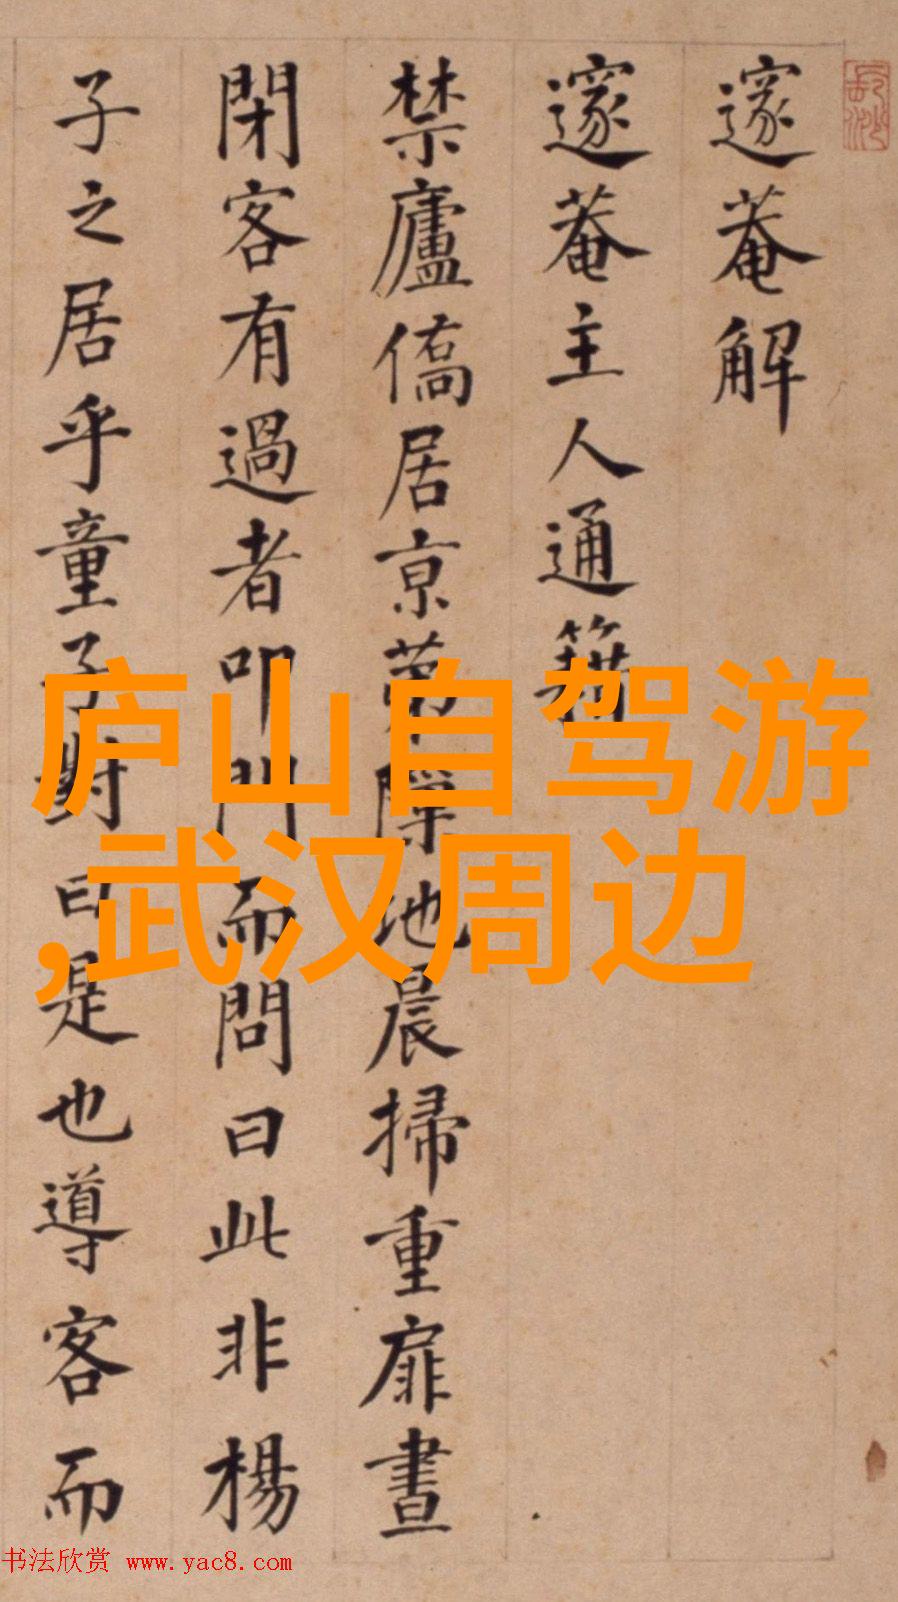 邃菴解
邃菴主人通籍
禁廬僑居京第隙地晨掃重扉晝
閉客有過者叩門而問曰此非楊
子之居乎童子對曰是也導客而
庐山自驾游
,武汉周边
书法欣赏 www.yac8.com